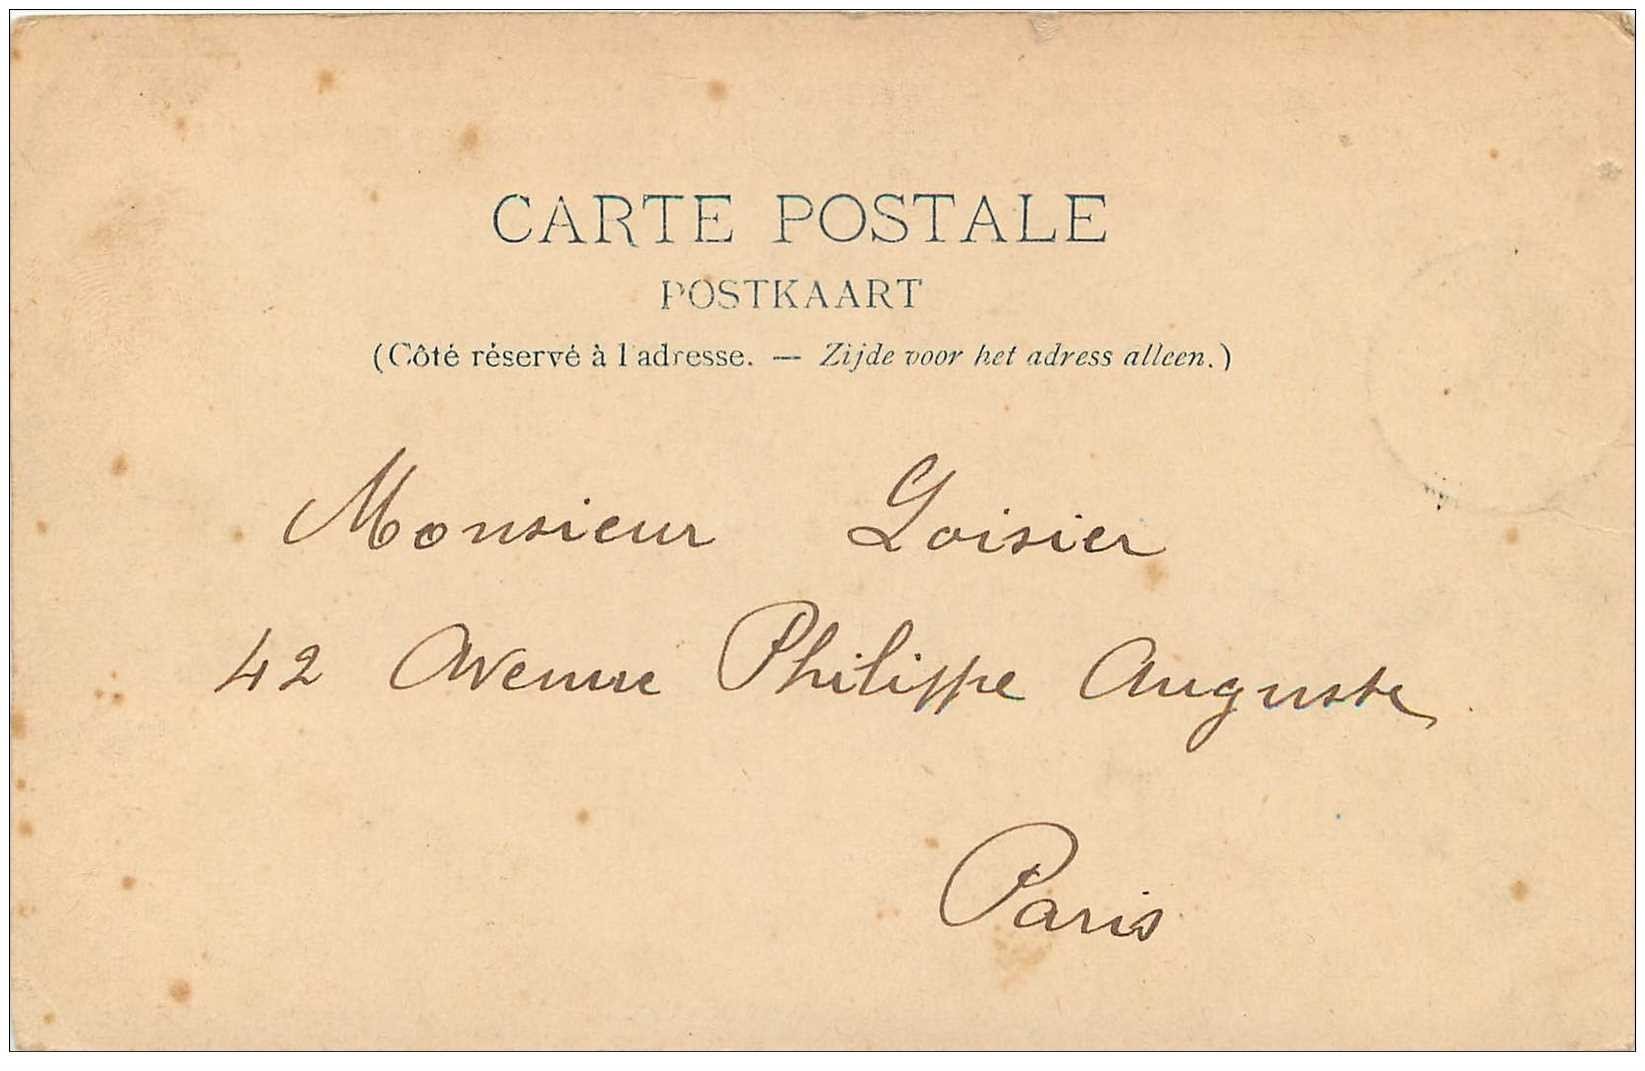 CARTE POSTALE
POSTKAART
(Côté réservé à l'adresse. — Zijde voor het adress alleen.)
Monsieur Loisier
42 Avenue Philippe Auguste
Paris